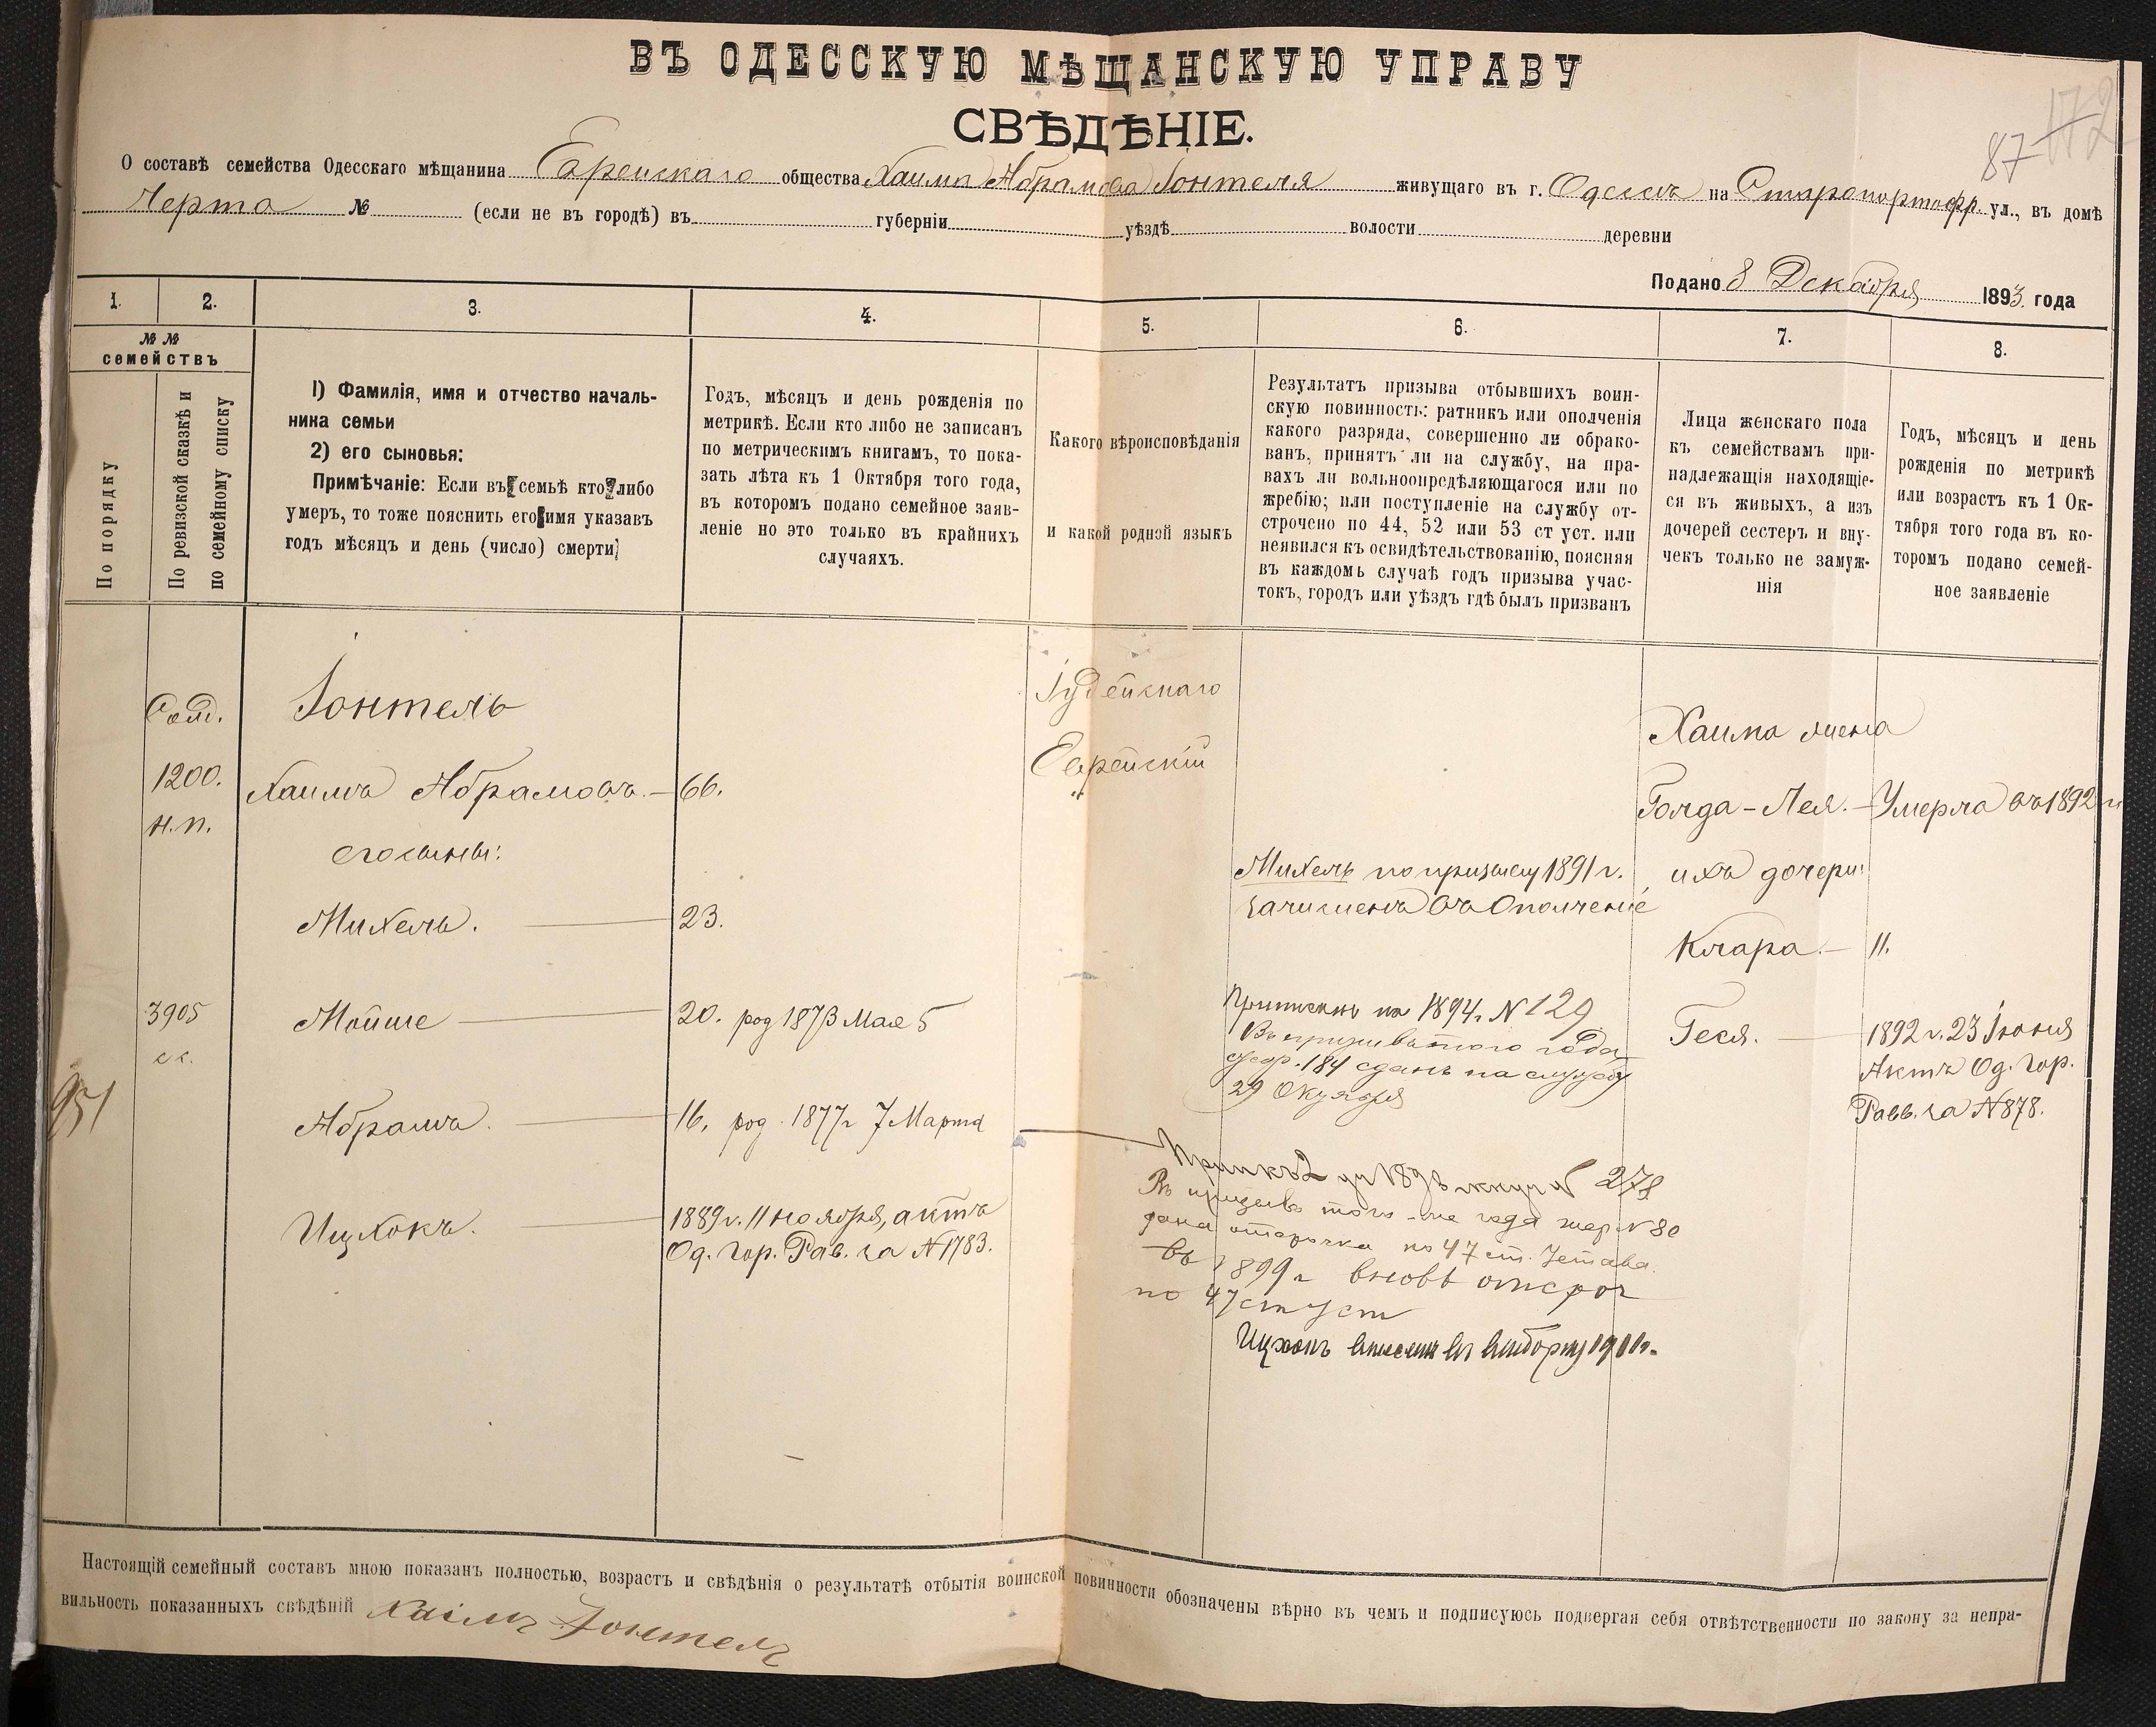 87 172
ВЪ ОДЕССКУЮ МѢЩАНСКУЮ УПРАВУ
СВѢДѢНІЕ.
О составѣ семейства Одесскаго мѣщанина Еврейскаго общества Хаима Абрамова Іонтеля живущаго въ г. Одессѣ на Старопортофр. ул., въ домѣ
Черта № (если не въ городѣ) въ губерніи уѣздѣ волости деревни
Подано 8 Декабря 1893 года
1. 2. 3. 4. 5. 6. 7. 8.
№ №
семействъ
По порядку
По ревизской сказкѣ и
по семейному списку
1) Фамилія, имя и отчество началь-
ника семьи
2) его сыновья:
Примѣчаніе: Если въ семьѣ кто либо
умеръ, то тоже пояснить его имя указавъ
годъ мѣсяцъ и день (число) смерти
Годъ, мѣсяцъ и день рожденія по
метрикѣ. Если кто либо не записанъ
по метрическимъ книгамъ, то пока-
зать лѣта къ 1 Октября того года,
въ которомъ подано семейное заяв-
леніе но это только въ крайнихъ
случаяхъ.
Какого вѣроисповѣданія
и какой родной языкъ
Результатъ призыва отбывшихъ воин-
скую повинность: ратникъ или ополченія
какого разряда, совершенно ли обрако-
ванъ, принятъ ли на службу, на пра-
вахъ ли вольноопредѣляющагося или по
жребію; или поступленіе на службу от-
строчено по 44, 52 или 53 ст уст. или
неявился къ освидѣтельствованію, поясняя
въ каждомъ случаѣ годъ призыва учас-
токъ, городъ или уѣздъ гдѣ былъ призванъ
Лица женскаго пола
къ семействамъ при-
надлежащія находящіе-
ся въ живыхъ, а изъ
дочерей сестеръ и вну-
чекъ только не замуж-
нія
Годъ, мѣсяцъ и день
рожденія по метрикѣ
или возрастъ къ 1 Ок-
тября того года въ ко-
торомъ подано семей-
ное заявленіе
1200.
н.п.
3905
с с.
951
Іонтель
Хаимъ Абрамовъ. — 66.
его сыны:
Михель. — 23.
Мойше — 20. род 1873 Мая 5
Абрамъ. — 16. род. 1877г 7 Марта
Ицхокъ. — 1889г. 11 ноября, актъ
Од. гор. Рав. за №1783.
Іудейскаго
Еврейскій
Михель по призыву 1891 г.
зачисленъ въ Ополченіе
Приписанъ на 1894 г. № 129
Въ призывѣ того года
жер. 184 сданъ на службу
29 Октября
№ 278
Въ призывѣ того-же года жер № 80
дана отсрочка по 47 ст. Устава.
Въ 1899 г вновь отсроч
по 47 ст уст
Ицхокъ внесенъ въ выборку 1911г.
Хаима жена
Голда-Лея. — Умерла въ 1892 г
ихъ дочери:
Клара. — 11.
Геся. — 1892 г. 23 Іюня
Актъ Од. Гор.
Равв. за №878.
Настоящій семейный составъ мною показанъ полностью, возрастъ и свѣдѣнія о результатѣ отбытія воинской повинности обозначены вѣрно въ чемъ и подписуюсь подвергая себя отвѣтственности по закону за непра-
вильность показанныхъ свѣдѣній Хаімъ Іонтель